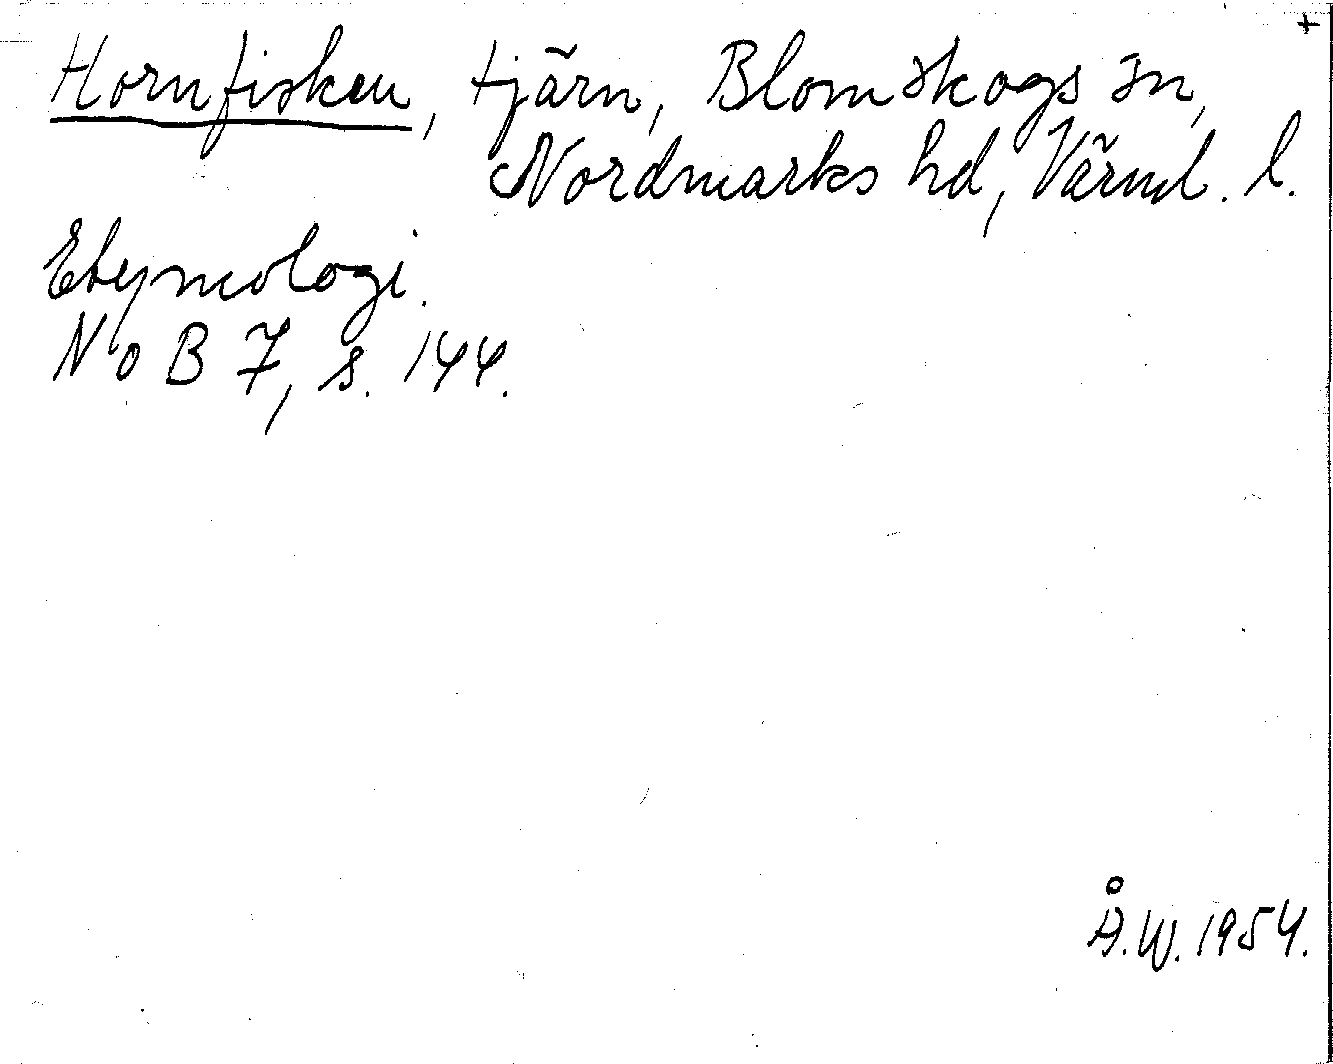 +
Hornfisken, tjärn, Blomskogs sn,
Nordmarks hd, Värml. l.
Etymologi.
NoB 7, s. 144.
Å.W. 1954.